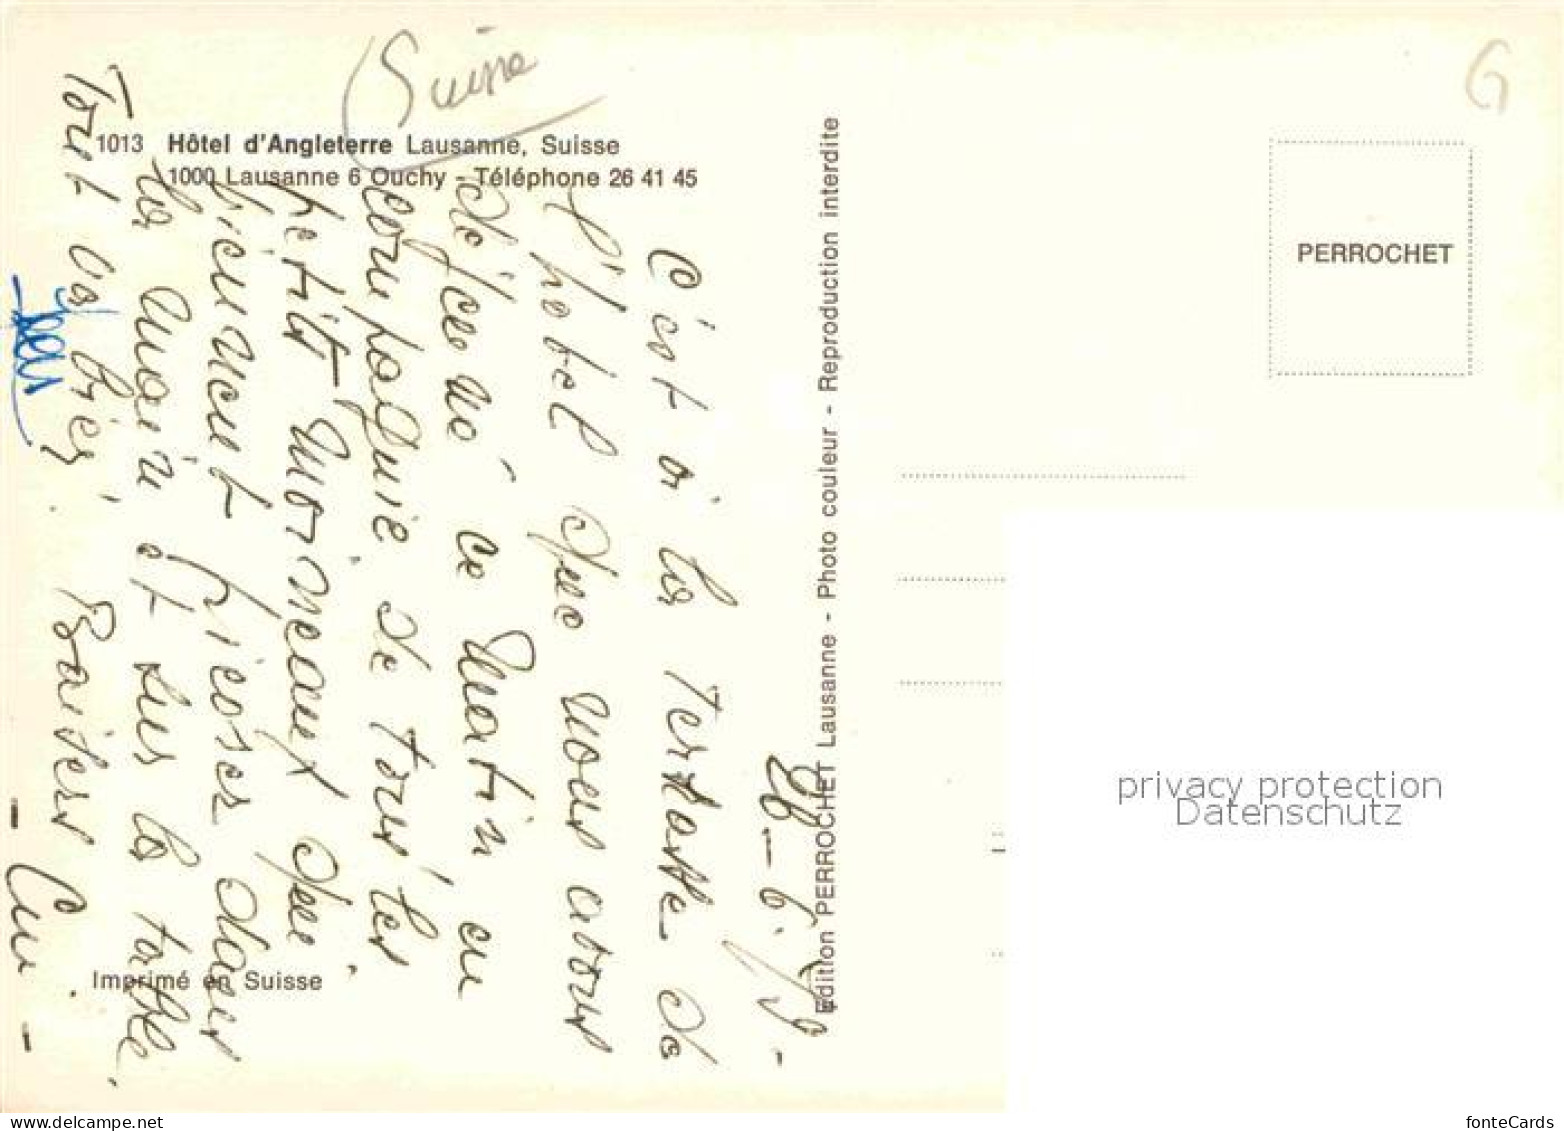 Suisse
G
1013 Hôtel d'Angleterre Lausanne, Suisse
1000 Lausanne 6 Ouchy - Téléphone 26 41 45
PERROCHET
Edition PERROCHET Lausanne - Photo couleur - Reproduction interdite
26-6-79-
C'est à la terrasse de
l'hotel que nous avons
déjeuné ce matin en
compagnie de tous les
petits moineaux qui
viennent picorer dans
la main et sur la table.
Tout va bien. Baisers
Imprimé en Suisse
privacy protection
Datenschutz
fonteCards